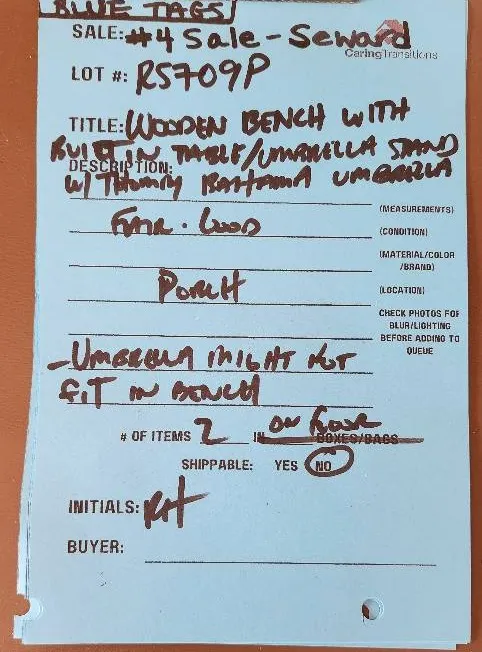 BLUE TAGS
SALE: #4 Sale - Seward
CaringTransitions
LOT #: RS709P
TITLE: WOODEN BENCH WITH
BUILT IN TABLE/UMBRELLA STAND
DESCRIPTION:
W/ THOMMY BAHAMA UMBRELLA
(MEASUREMENTS)
FAIR - GOOD (CONDITION)
(MATERIAL/COLOR
/BRAND)
PORCH (LOCATION)
CHECK PHOTOS FOR
BLUR/LIGHTING
BEFORE ADDING TO
QUEUE
- UMBRELLA MIGHT NOT
FIT IN BENCH
ON FLOOR
# OF ITEMS 2 IN BOXES/BAGS
SHIPPABLE: YES NO
INITIALS: RH
BUYER: